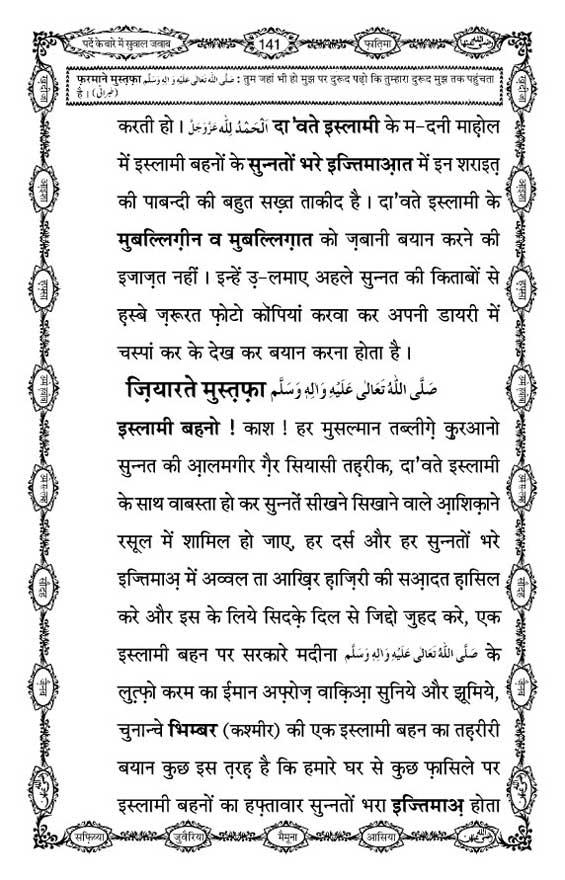 पर्दे के बारे में सुवाल जवाब
141
फ़ातिमा
फ़रमाने मुस्तफ़ा صَلَّى اللّٰهُ تَعَالٰى عَلَيْهِ وَاٰلِهٖ وَسَلَّم : तुम जहां भी हो मुझ पर दुरूद पढ़ो कि तुम्हारा दुरूद मुझ तक पहुंचता
है। (طبرانی)
करती हो। اَلْحَمْدُ لِلّٰه عَزَّوَجَلَّ दा'वते इस्लामी के म-दनी माहोल
में इस्लामी बहनों के सुन्नतों भरे इज्तिमाआ़त में इन शराइत़
की पाबन्दी की बहुत सख़्त ताकीद है। दा'वते इस्लामी के
मुबल्लिग़ीन व मुबल्लिग़ात को ज़बानी बयान करने की
इजाज़त नहीं। इन्हें उ़-लमाए अहले सुन्नत की किताबों से
ह़स्बे ज़रूरत फ़ोटो कॉपियां करवा कर अपनी डायरी में
चस्पां कर के देख कर बयान करना होता है।
ज़ियारते मुस्तफ़ा صَلَّى اللّٰهُ تَعَالٰى عَلَيْهِ وَاٰلِهٖ وَسَلَّم
इस्लामी बहनो ! काश ! हर मुसल्मान तब्लीग़े क़ुरआनो
सुन्नत की आ़लमगीर ग़ैर सियासी तहरीक, दा'वते इस्लामी
के साथ वाबस्ता हो कर सुन्नतें सीखने सिखाने वाले आ़शिक़ाने
रसूल में शामिल हो जाए, हर दर्स और हर सुन्नतों भरे
इज्तिमाअ़ में अव्वल ता आख़िर ह़ाज़िरी की सआ़दत ह़ासिल
करे और इस के लिये सिद्‌के़ दिल से जिद्दो जुहद करे, एक
इस्लामी बहन पर सरकारे मदीना صَلَّى اللّٰهُ تَعَالٰى عَلَيْهِ وَاٰلِهٖ وَسَلَّم के
लुत़्फ़ो करम का ईमान अफ़्रोज़ वाक़िआ़ सुनिये और झूमिये,
चुनान्चे भिम्बर (कश्मीर) की एक इस्लामी बहन का तह़रीरी
बयान कुछ इस त़रह़ है कि हमारे घर से कुछ फ़ासिले पर
इस्लामी बहनों का हफ़्तावार सुन्नतों भरा इज्तिमाअ़ होता
सफ़िय्या
जुवैरिया
मैमूना
आसिया